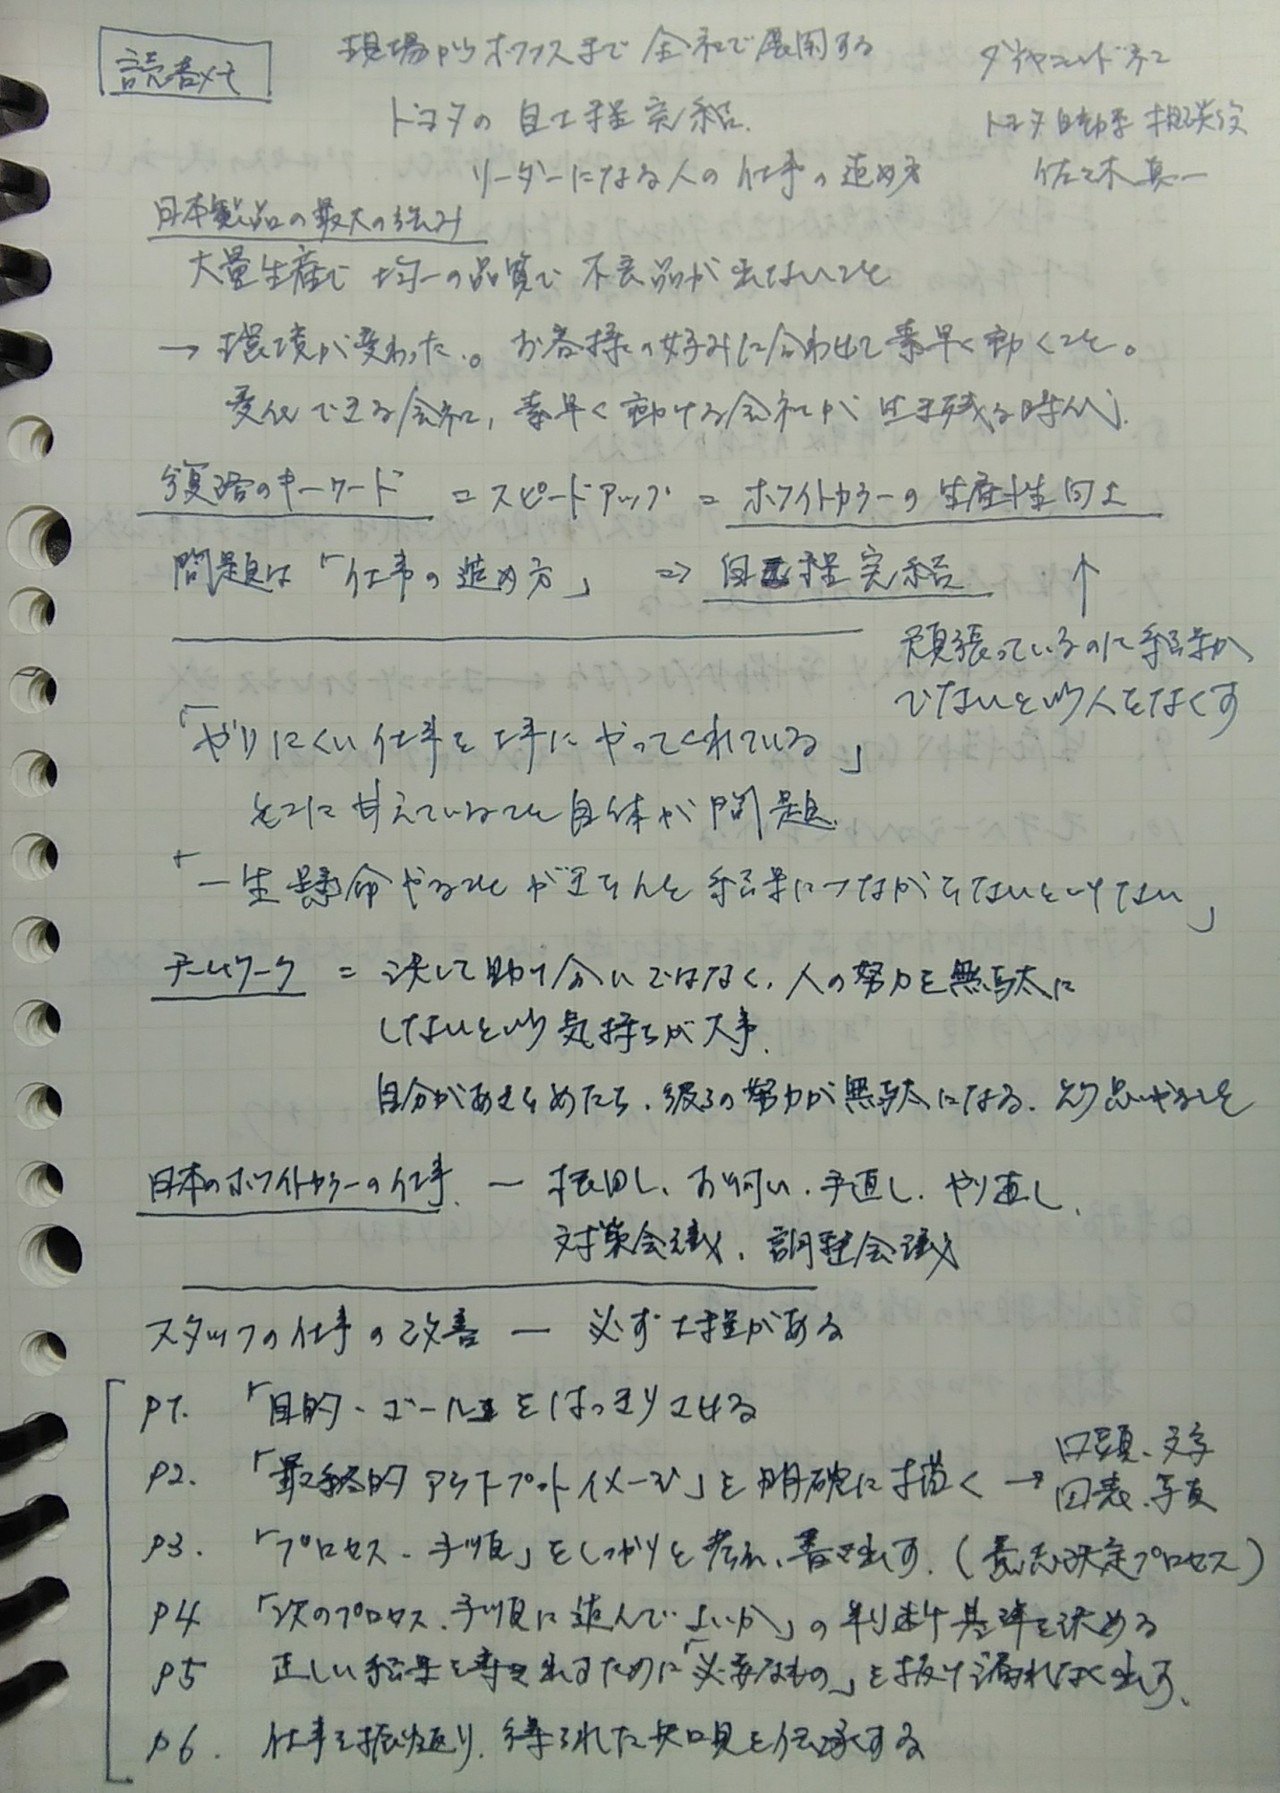 読書メモ
現場からオフィスまで 全社で展開する
ダイヤモンド社
トヨタの 自工程完結
トヨタ自動車 相談役
リーダーになる人の 仕事の進め方
佐々木真一
日本製品の最大の強み
大量生産で 均一の品質で 不良品が出ないこと
→ 環境が変わった。お客様の好みに合わせて素早く動くこと。
変化できる会社、素早く動ける会社が 生き残る時代
復活のキーワード = スピードアップ = ホワイトカラーの生産性向上
問題は「仕事の進め方」 ⇒ 自工程完結 ↑
頑張っているのに結果が
でないという人をなくす
「やりにくい仕事を上手にやってくれている」
そこに甘えていること自体が問題
「一生懸命やることがきちんと結果につながらないといけない」
チームワーク = 決して助け合いではなく、人の努力を無駄に
しないという気持ちが大事
自分があきらめたら、彼らの努力が無駄になる、と思いやる心を
日本のホワイトカラーの仕事 ー 根回し、お伺い、手直し、やり直し、
対策会議、調整会議
スタッフの仕事の改善 ー 必ず工程がある
P1. 「目的・ゴール」をはっきりさせる
P2. 「最終的アウトプットイメージ」を明確に描く → 口頭、文字
図表、写真
P3. 「プロセス・手順」をしっかりと考え、書き出す。(意志決定プロセス)
P4 「次のプロセス、手順に進んでよいか」の判断基準を決める
P5 正しい結果を導き出すために「必要なもの」を抜け漏れなく出す、
P6. 仕事を振り返り、得られた知見を伝承する